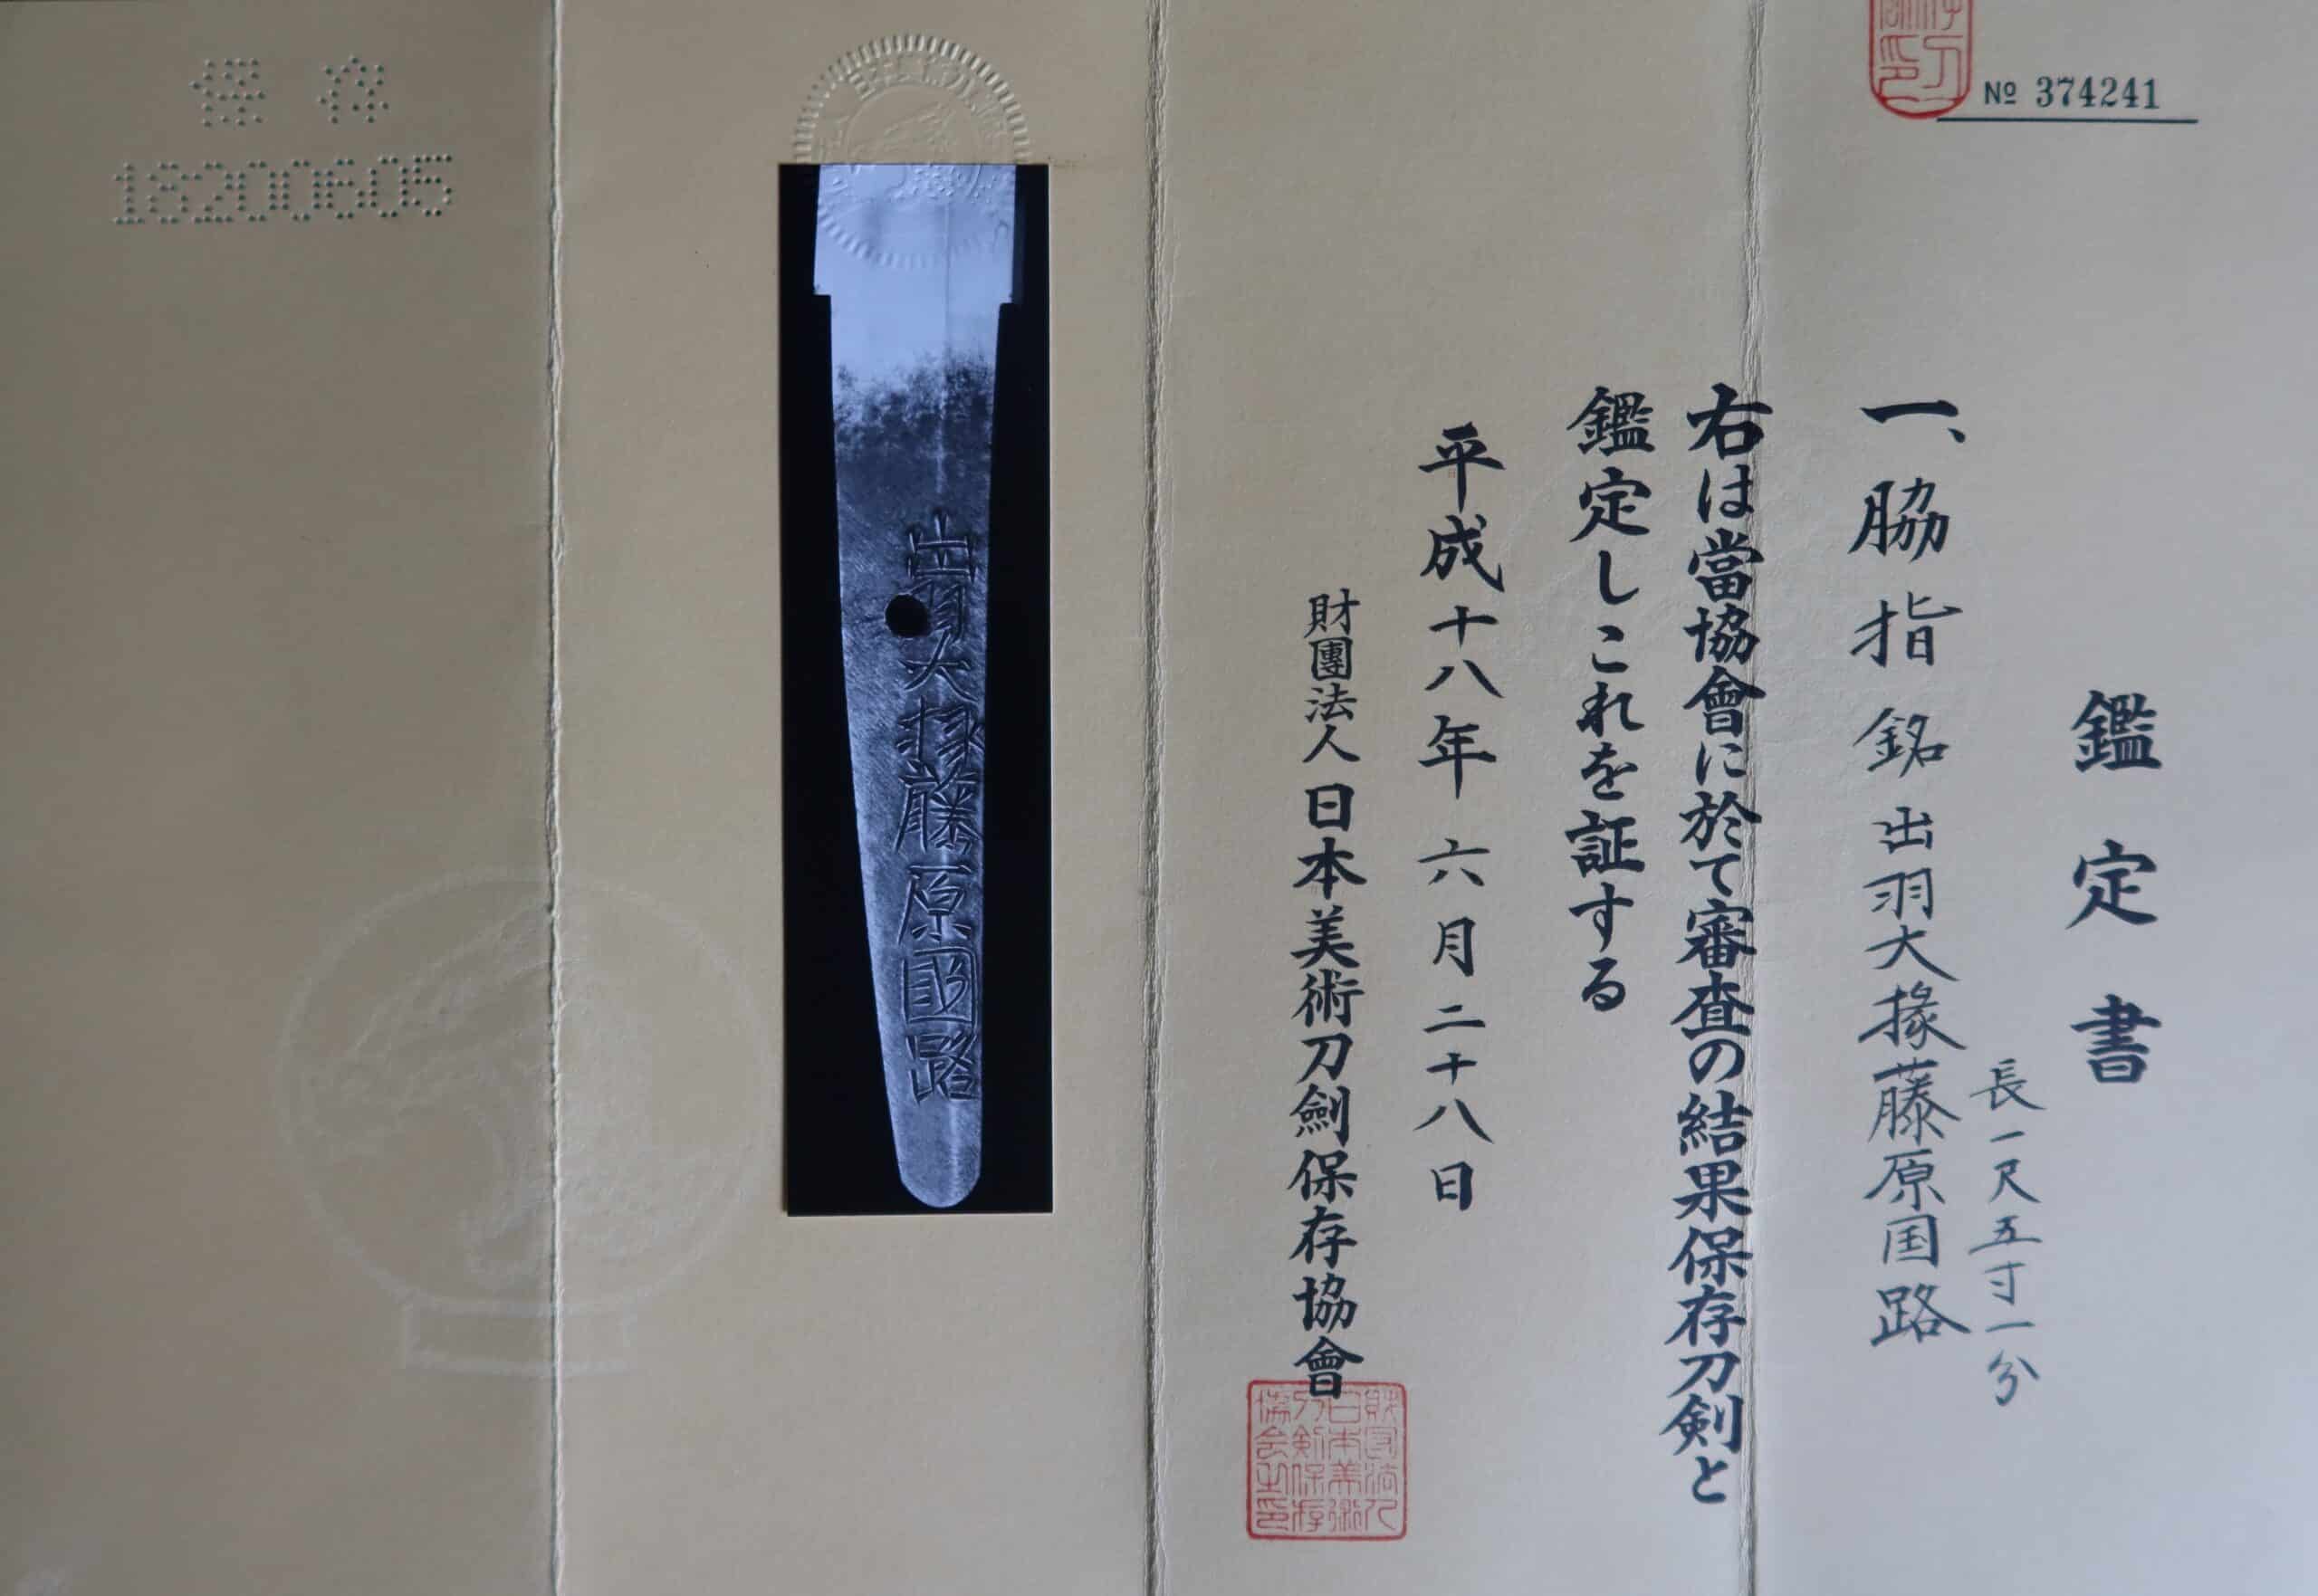 № 374241
鑑定書
長一尺五寸一分
一、脇指 銘 出羽大掾藤原国路
右は當協會に於て審査の結果保存刀剣と
鑑定しこれを証する
平成十八年六月二十八日
財團法人日本美術刀劍保存協會
財団法人
日本美術
刀剣保存
協会之印
出羽大掾藤原國路
保存
18200605